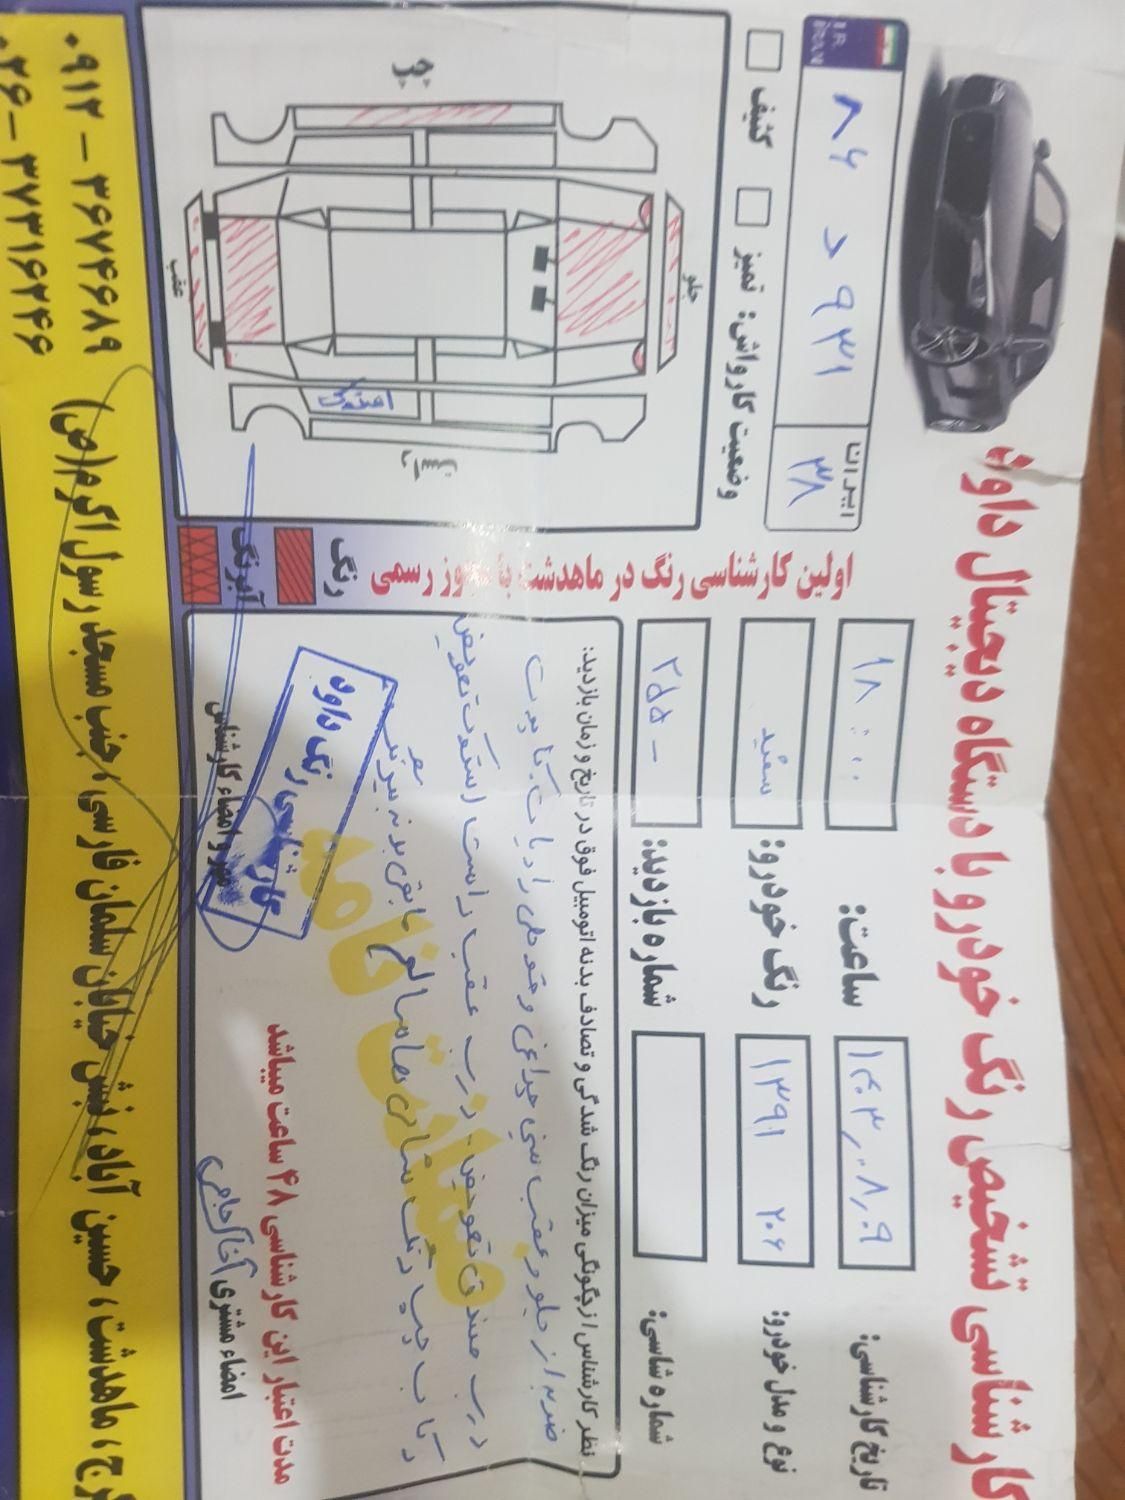 کارشناسی تشخیص رنگ خودرو با دستگاه دیجیتال داود
تاریخ کارشناسی: ۱۴۰۳٫۰۸٫۰۹
ساعت: ۱۸:۰۰
نوع و مدل خودرو: ۲۰۶ ۱۳۹۱
رنگ خودرو: سفید
شماره شاسی:
شماره بازدید: ۲۵۵۰
I.R. IRAN
۸۶ د ۹۳۱
ایران ۳۸
وضعیت کارواش: تمیز کثیف
جلو
عقب
چپ
راست
اولین کارشناسی رنگ در ماهدشت با مجوز رسمی
رنگ
آبرنگ
نظر کارشناس از چگونگی میزان رنگ شدگی و تصادف بدنه اتومبیل فوق در تاریخ و زمان بازدید:
ضربه از جلو و عقب سینی
درب صندوق تعویض. درب عقب راست
رکاب چپ رنگ شاسی ها سالم مابقی بدنه بیرنگ
کارشناسی رنگ داود
مدت اعتبار این کارشناسی ۴۸ ساعت میباشد
مهر و امضاء کارشناس
امضاء مشتری
کرج، ماهدشت، حسین آباد، نبش خیابان سلمان فارسی، جنب مسجد رسول اکرم(ص)
۰۹۱۲ - ۳۶۷۴۶۸۹
۰۲۶ - ۳۷۳۱۶۲۴۶